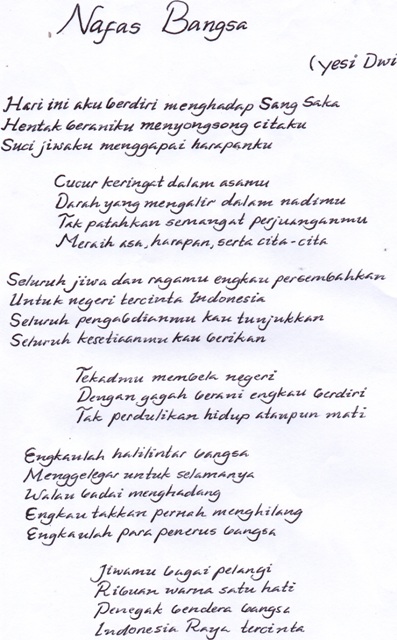 Nafas Bangsa
(Yesi Dwi
Hari ini aku berdiri menghadap Sang Saka
Hentak beraniku menyongsong citaku
Suci jiwaku menggapai harapanku
Cucur keringat dalam asamu
Darah yang mengalir dalam nadimu
Tak patahkan semangat perjuanganmu
Meraih asa, harapan, serta cita-cita
Seluruh jiwa dan ragamu engkau persembahkan
Untuk negeri tercinta Indonesia
Seluruh pengabdianmu kau tunjukkan
Seluruh kesetiaanmu kau berikan
Tekadmu membela negeri
Dengan gagah berani engkau berdiri
Tak perdulikan hidup ataupun mati
Engkaulah halilintar bangsa
Menggelegar untuk selamanya
Walau badai menghadang
Engkau takkan pernah menghilang
Engkaulah para penerus bangsa
Jiwamu bagai pelangi
Ribuan warna satu hati
Penegak bendera bangsa
Indonesia Raya tercinta